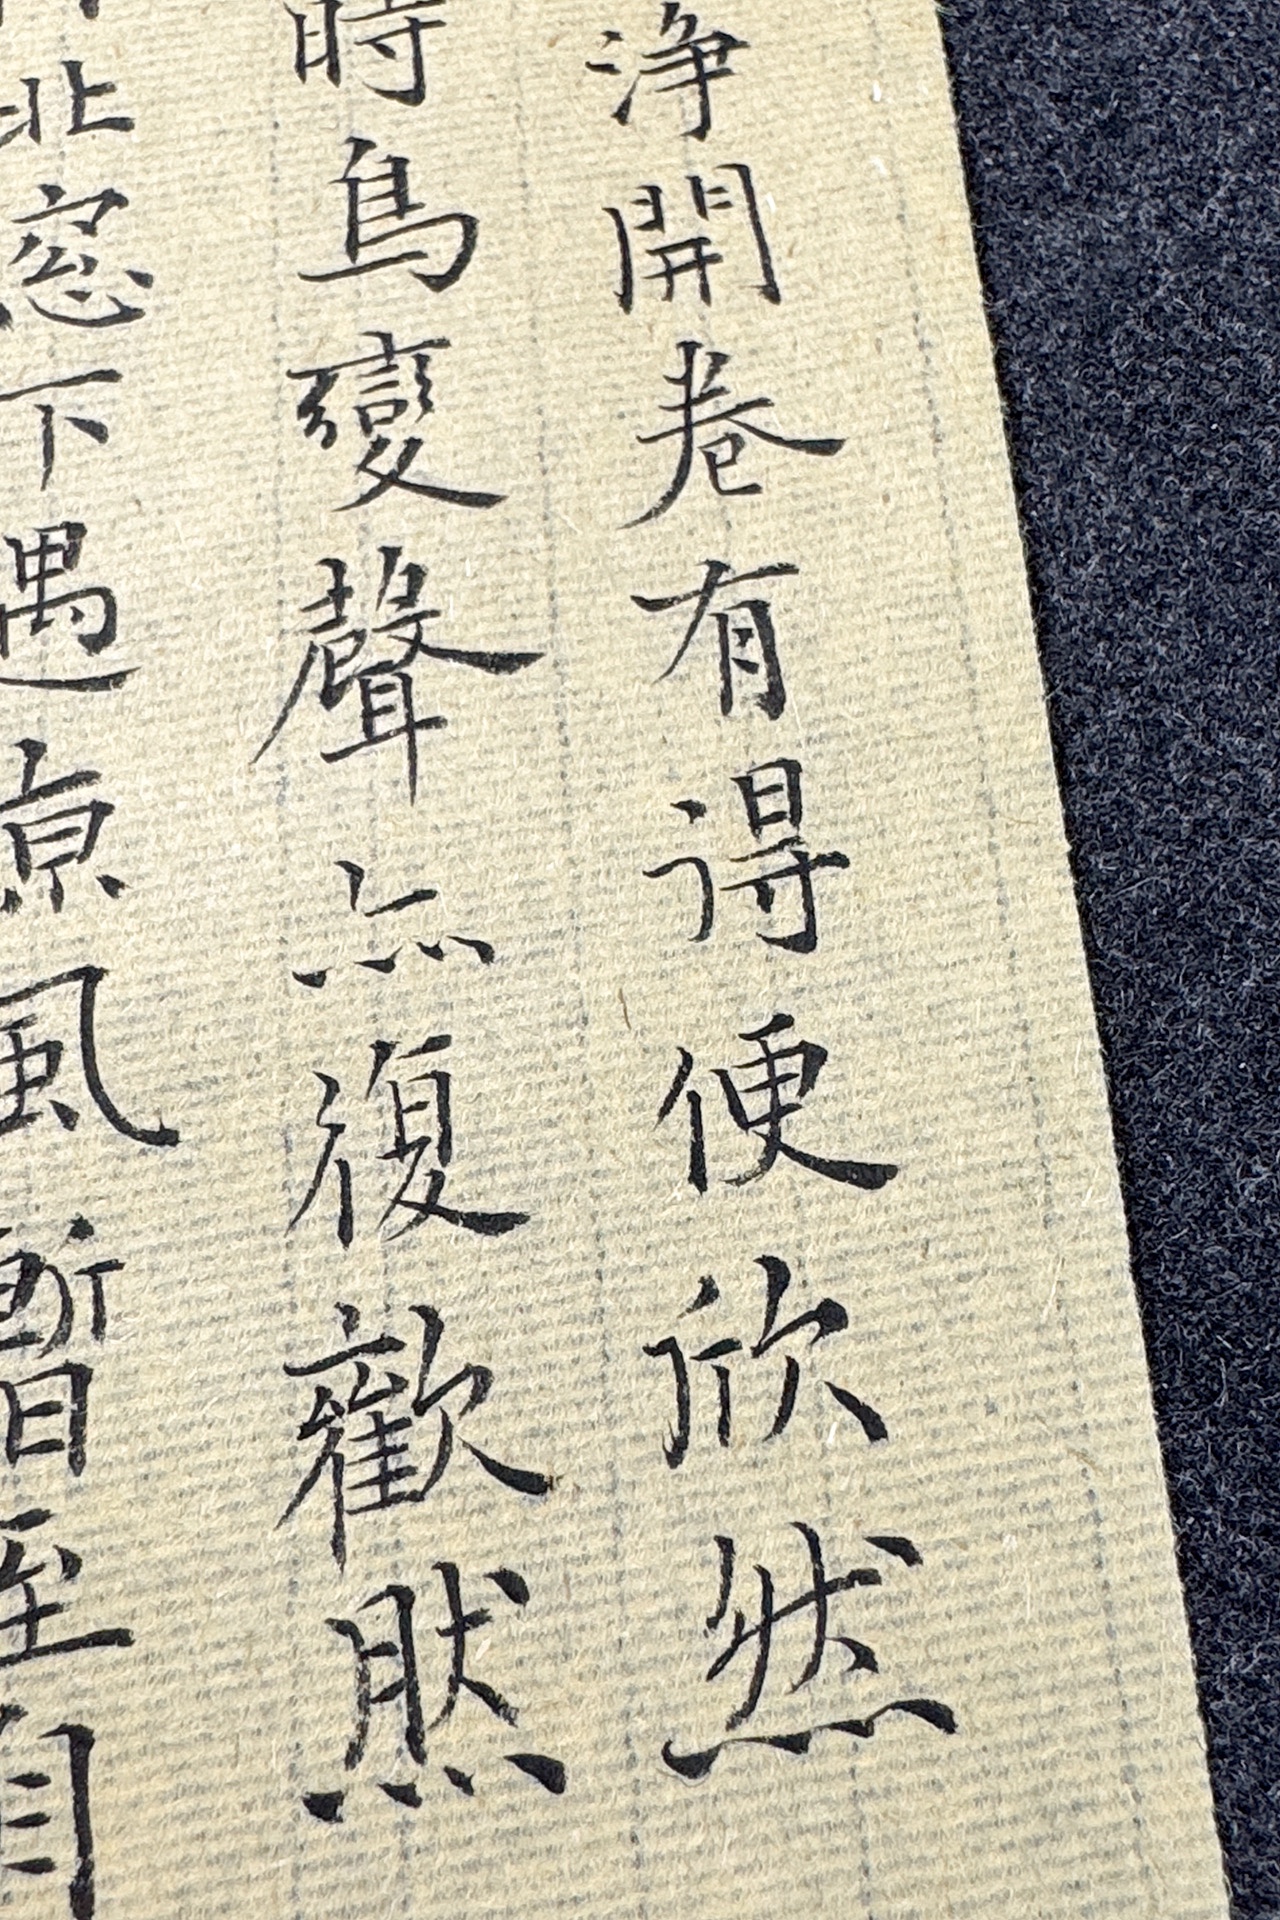 浄開卷有得便欣然
時鳥變聲亦復歡然
北窓下遇涼風暫至自